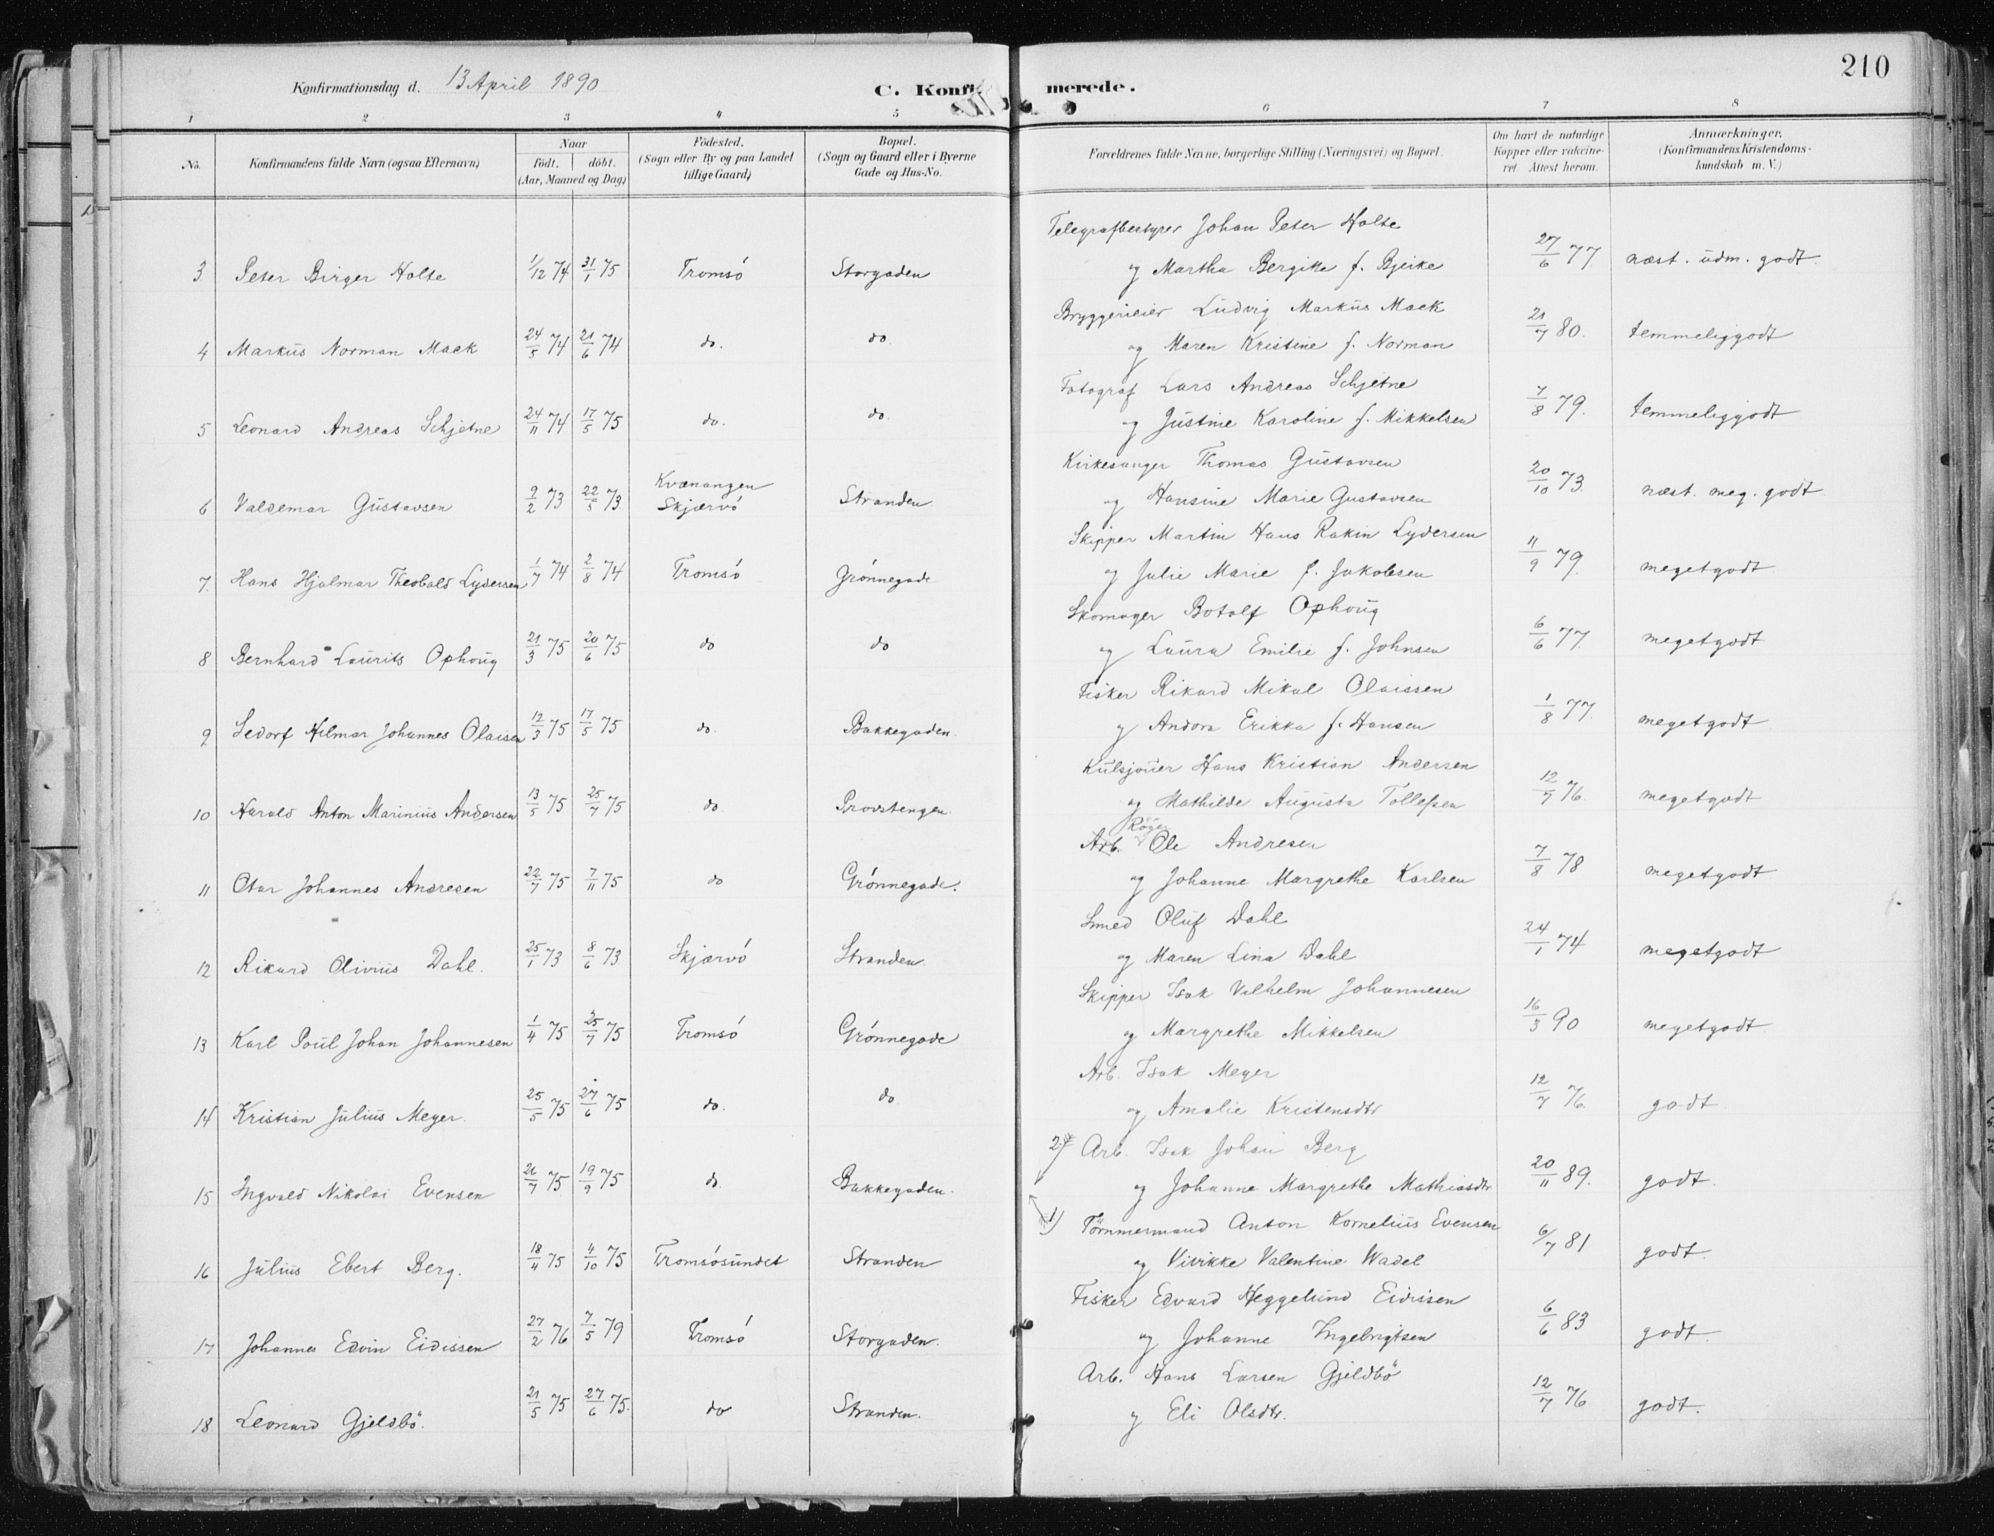 210
Konfirmationsdag d. 13 April 1890
C. Konfirmerede.
1 2 3 4 5 6 7 8
No. Konfirmandens fulde Navn (ogsaa Efternavn)
Naar
født. døbt.
(Aar, Maaned og Dag)
Fødested.
(Sogn eller By og paa Landet
tillige Gaard)
Bopæl.
(Sogn og Gaard eller i Byerne
Gade og Hus-No.
Forældrenes fulde Navne, borgerlige Stilling (Næringsvei) og Bopæl.
Om havt de naturlige
Kopper eller vakcine-
ret Attest herom.
Anmærkninger.
(Konfirmandens Kristendoms-
kundskab m. V.)
Telegrafbestyrer Johan Peter Holte
3 Peter Birger Holte 1/12 74 31/1 75 Tromsø Storgaden og Martha Bergike f. Bjeike 27/6 77. næst. udm. godt.
Bryggerieier Ludvig Markus Mack
4 Markus Norman Mack 24/5 74 21/6 74 do. do. og Maren Kristine f. Norman 21/7 80. temmeliggodt
Fotograf Lars Andreas Schjetne
5 Leonard Andreas Schjetne 24/11 74 17/5 75 do. do. og Justine Karoline f. Mikkelsen 7/8 79. temmeliggodt
Kirkesanger Thomas Gustavsen
6 Valdemar Gustavsen 9/2 73 22/5 73 Kvænangen Skjærvø Stranden og Hansine Marie Gustavsen 20/10 73 næst. meg. godt
Skipper Martin Hans Rakin Lydersen
7. Hans Hjalmar Theobald Lydersen 1/7 74 2/8 74 Tromsø Grønnegade og Julie Marie f. Jakobsen 11/9 79. megetgodt
Skomager Botolf Ophoug
8 Bernhard Laurits Ophoug 21/3 75 20/6 75 do do og Laura Emilie f. Johnsen 6/6 77. megetgodt
Fisker Rikard Mikal Olaissen
9 Sedorf Hilmar Johannes Olaisen 12/3 75 17/5 75 do. Bakkegaden. og Andora Erikka f. Hansen 1/8 77. megetgodt
Kulsjouer Hans Kristian Andersen
10 Harald Anton Marinius Andersen 13/5 75 25/7 75 do Provstengen. og Mathilde Augusta Tollefsen 12/7 76. megetgodt
Arb. Ole Andresen
11 Otar Johannes Andresen 22/7 75 7/11 75 do Grønnegade. og Johanne Margrethe Karlsen 7/8 78 megetgodt
Smed Oluf Dahl
12 Rikard Olivius Dahl. 25/1 73 8/6 73 Skjærvø Stranden. og Maren Lina Dahl 24/1 74 megetgodt
Skipper Isak Vilhelm Johannesen
13 Karl Poul Johan Johannesen 1/4 75 25/7 75 Tromsø Grønnegade og Margrethe Mikkelsen 16/3 90 megetgodt
Arb. Isak Meyer
14 Kristian Julius Meyer. 25/5 75 27/6 75 do. do og Amalie Kristensdtr 12/7 76. godt
2) Arb. Isak Johan Berg
15 Ingvald Nikolai Evensen 26/7 75 19/9 75 do. Bakkegaden. og Johanne Margrethe Mathiasdtr 20/11 89. godt.
1) Tømmermand Anton Kornelius Evensen
16 Julius Ebert Berg. 18/4 75 4/10 75 Tromsøsundet Stranden og Vivikke Valentine Wadel 6/7 81 godt.
Fisker Edvard Heggelund Eidissen
17 Johannes Edvin Eidissen 27/2 76 7/5 79 Tromsø Storgaden. og Johanne Ingebrigtsen 6/6 83 godt.
Arb. Hans Larsen Gjeldbø
18 Leonard Gjeldbø. 21/5 75 27/6 75. do Stranden. og Eli Olsdtr. 12/7 76 godt.